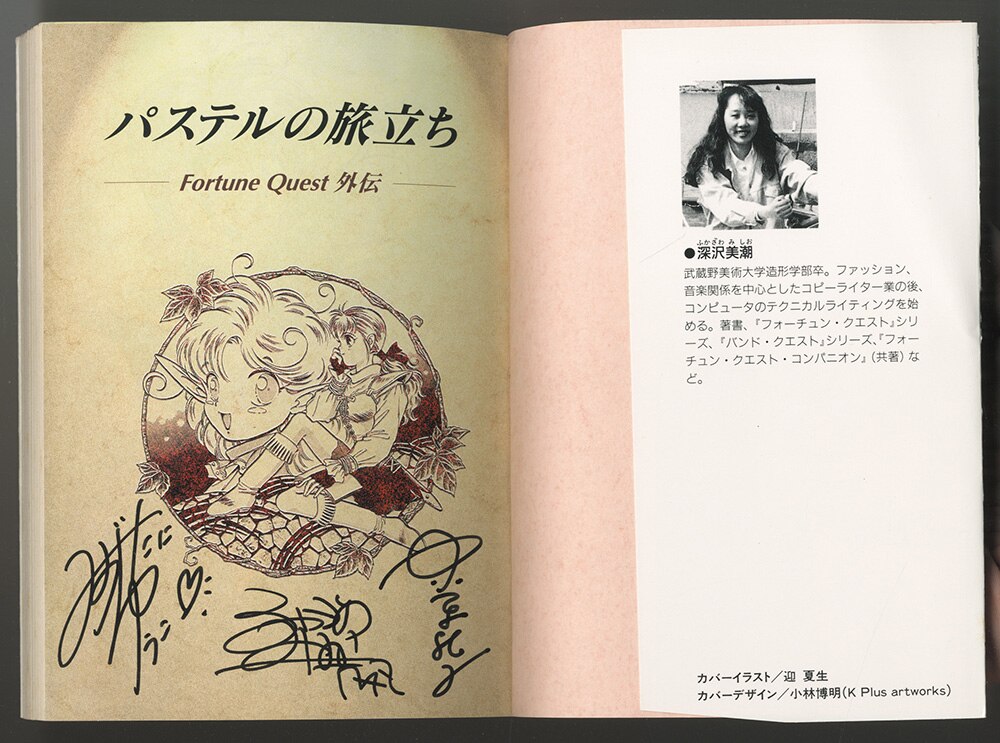 パステルの旅立ち
Fortune Quest 外伝
ふかざわ み しお
●深沢美潮
武蔵野美術大学造形学部卒。ファッション、
音楽関係を中心としたコピーライター業の後、
コンピュータのテクニカルライティングを始
める。著書、『フォーチュン・クエスト』シリ
ーズ、『バンド・クエスト』シリーズ、『フォー
チュン・クエスト・コンパニオン』（共著）な
ど。
カバーイラスト／迎 夏生
カバーデザイン／小林博明（K Plus artworks）